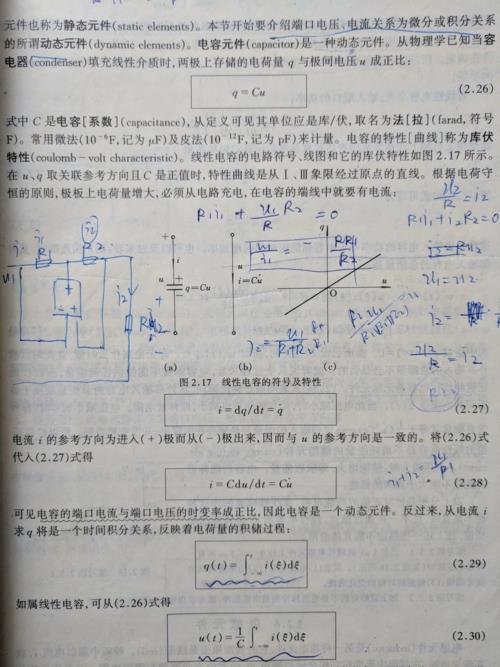 元件也称为静态元件(static elements)。本节开始要介绍端口电压、电流关系为微分或积分关系
的所谓动态元件(dynamic elements)。电容元件(capacitor)是一种动态元件。从物理学已知当容
电器(condenser)填充线性介质时,两极上存储的电荷量 q 与极间电压 u 成正比:
q = Cu (2.26)
式中 C 是电容[系数](capacitance),从定义可见其单位应是库/伏,取名为法[拉](farad,符号
F)。常用微法(10⁻⁶F,记为 μF)及皮法(10⁻¹²F,记为 pF)来计量。电容的特性[曲线]称为库伏
特性(coulomb – volt characteristic)。线性电容的电路符号、线图和它的库伏特性如图 2.17 所示。
在 u、q 取关联参考方向且 C 是正值时,特性曲线是从Ⅰ、Ⅲ象限经过原点的直线。根据电荷守
恒的原则,极板上电荷量增大,必须从电路充电,在电容的端线中就要有电流:
R₁i₁ + u₁/R R₂ = 0
u₂/R = i₂
R₁i₁ + i₂R₂ = 0
u₁ = u₂
u₂/R = i₂
+ i u q = Cu −
+ u i = Cq̇ −
q O u
(a) (b) (c)
图 2.17 线性电容的符号及特性
i = dq/dt = q̇ (2.27)
电流 i 的参考方向为进入(+)极而从(−)极出来,因而与 u 的参考方向是一致的。将(2.26)式
代入(2.27)式得
i = Cdu/dt = Cu̇ (2.28)
i₁+i₂ = u₁/R₁
可见电容的端口电流与端口电压的时变率成正比,因此电容是一个动态元件。反过来,从电流 i
求 q 将是一个时间积分关系,反映着电荷量的积储过程:
q(t) = ∫₋∞ᵗ i(ξ)dξ (2.29)
如属线性电容,可从(2.26)式得
u(t) = 1/C ∫₋∞ᵗ i(ξ)dξ (2.30)